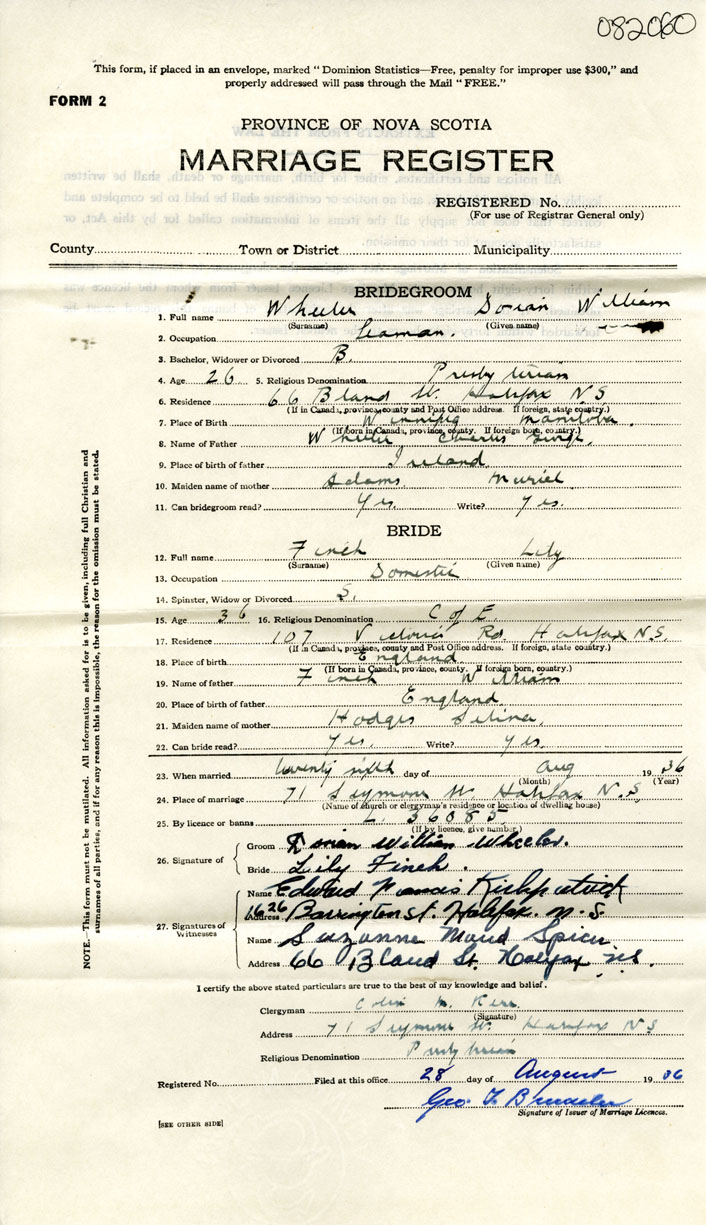 082060
This form, if placed in an envelope, marked "Dominion Statistics—Free, penalty for improper use $300," and
properly addressed will pass through the Mail "FREE."
FORM 2
PROVINCE OF NOVA SCOTIA
MARRIAGE REGISTER
REGISTERED No.
(For use of Registrar General only)
County Town or District Municipality
BRIDEGROOM
1. Full name Wheeler Dorian William
(Surname) (Given name)
2. Occupation Seaman.
3. Bachelor, Widower or Divorced B.
4. Age 26 5. Religious Denomination Presbyterian
6. Residence 66 Bland St. Halifax N S
(If in Canada, province, county and Post Office address. If foreign, state country.)
7. Place of Birth Winnipeg Manitoba.
(If born in Canada, province, county. If foreign born, country.)
8. Name of Father Wheeler Charles George,
9. Place of birth of father Ireland
10. Maiden name of mother Adams Muriel
11. Can bridegroom read? Yes. Write? Yes.
BRIDE
12. Full name Finch Lily
(Surname) (Given name)
13. Occupation Domestic
14. Spinster, Widow or Divorced S.
15. Age 36 16. Religious Denomination C of E.
17. Residence 107 Victoria Rd. Halifax N.S.
(If in Canada, province, county and Post Office address. If foreign, state country.)
18. Place of birth England
(If born in Canada, province, county. If foreign born, country.)
19. Name of father Finch William
20. Place of birth of father England.
21. Maiden name of mother Hodges Selina,
22. Can bride read? Yes. Write? Yes.
23. When married twenty sixth day of Aug 1936
(Month) (Year)
24. Place of marriage 71 Seymour St. Halifax N.S.
(Name of church or clergyman's residence or location of dwelling house)
25. By licence or banns L. 36085
(If by licence, give number.)
26. Signature of
Groom Dorian William Wheeler.
Bride Lily Finch.
27. Signatures of Witnesses
Name Edward Francis Kirkpatrick
Address 1626 Barrington St. Halifax. N.S.
Name Suzanne Maud Spicer
Address 66 Bland St. Halifax N.S.
I certify the above stated particulars are true to the best of my knowledge and belief.
Clergyman Colin M. Kerr
(Signature)
Address 71 Seymour St. Halifax N S
Religious Denomination Presbyterian
Registered No. Filed at this office 28 day of August 1936
Geo. F.
Signature of Issuer of Marriage Licences.
[SEE OTHER SIDE]
NOTE.—This form must not be mutilated. All information asked for is to be given, including full Christian and
surnames of all parties, and if for any reason this is impossible, the reason for the omission must be stated.